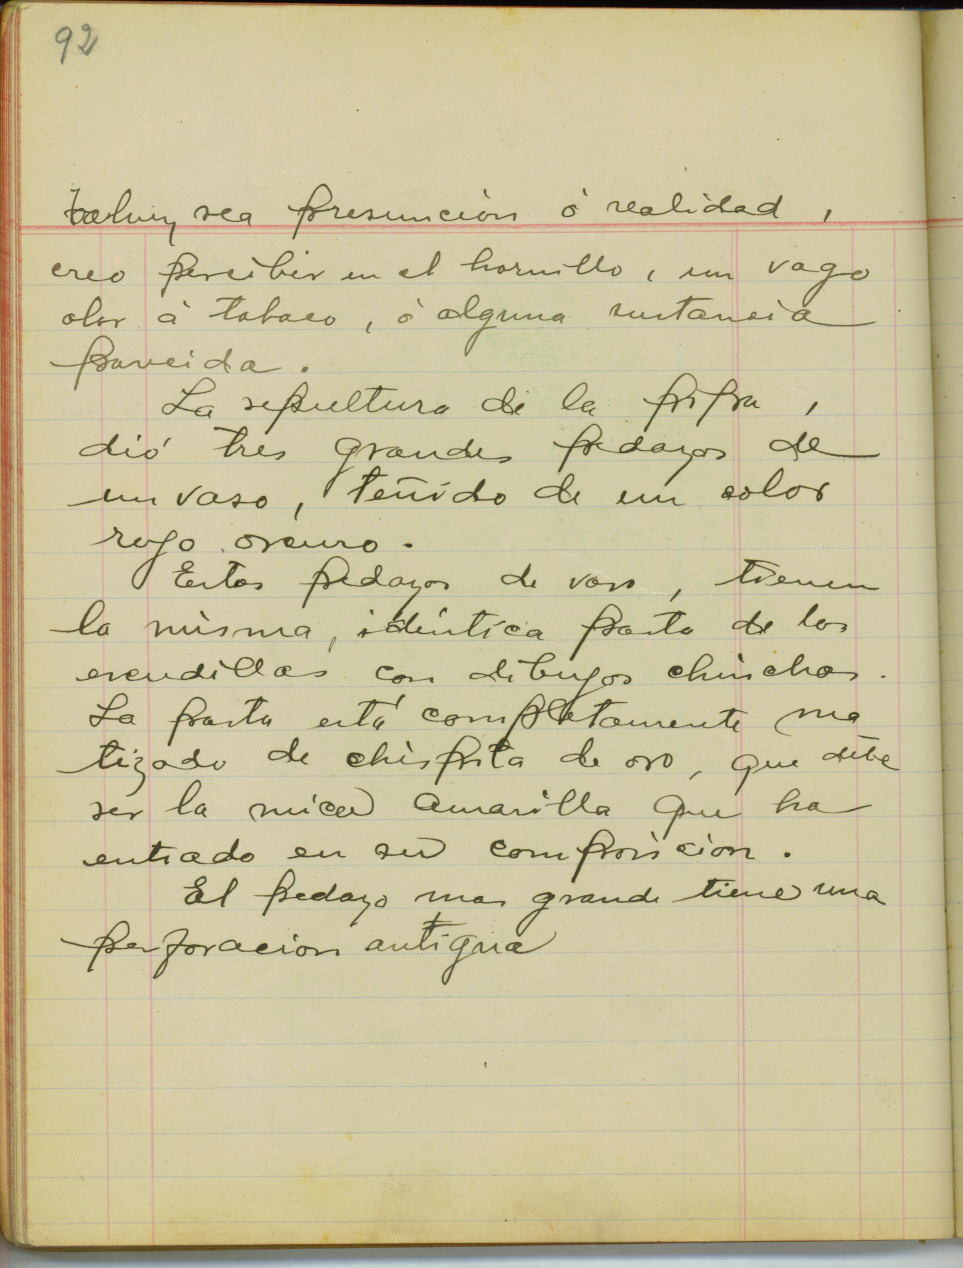 92
talvez sea presunción ó realidad,
creo percibir en el hornillo, un vago
olor á tabaco, ó alguna sustancia
parecida.
La sepultura de la pipa,
dió tres grandes pedazos de
un vaso, teñido de un color
rojo oscuro.
Estos pedazos de vaso, tienen
la misma, idéntica pasta de las
escudillas con dibujos chinchas.
La pasta está completamente ma
tizado de chispita de oro, que debe
ser la mica amarilla que ha
entrado en su composicion.
El pedazo mas grande tiene una
perforacion antigua